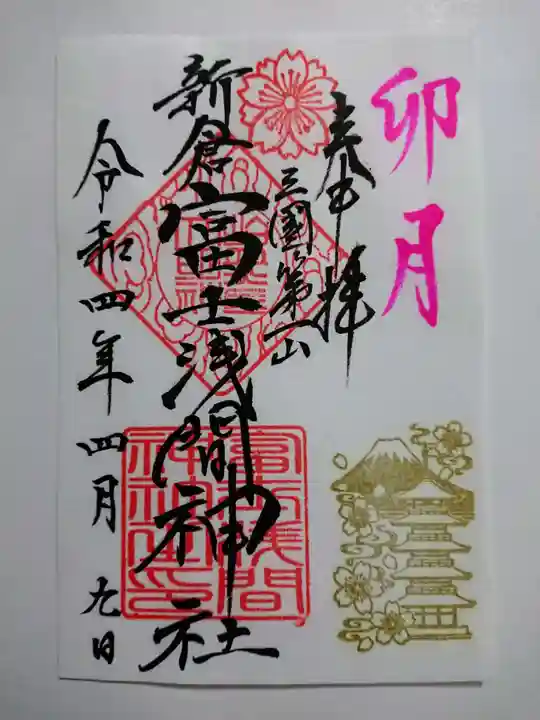 卯月
奉拝
三國第一山
新倉富士浅間神社
令和四年四月九日
冨士浅間
神社之印